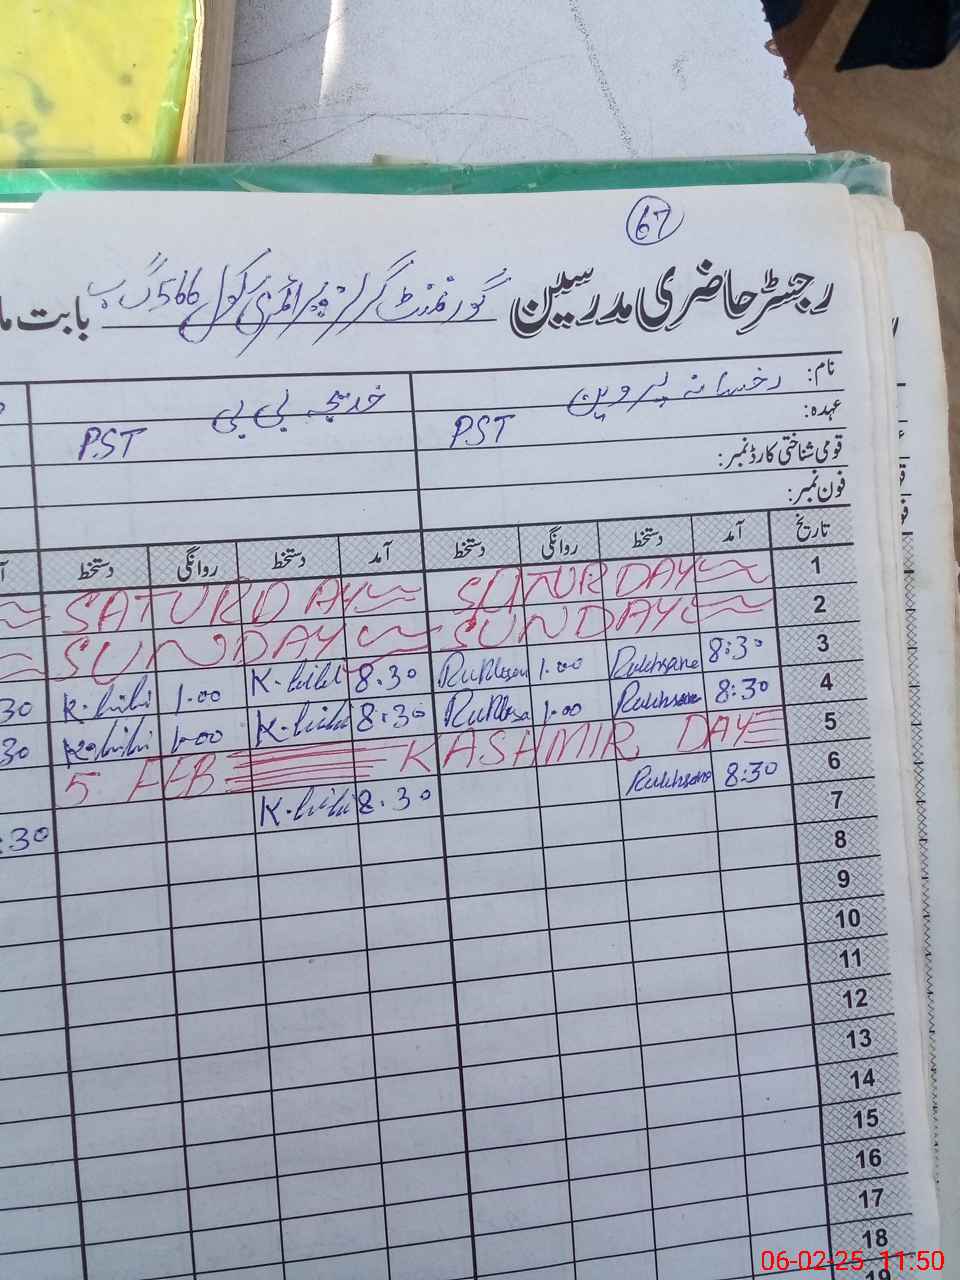 67
رجسٹر حاضری مدرسین گورنمنٹ گرلز پرائمری سکول 566 گ ب بابت ما
نام: رخسانہ پروین خدیجہ بی بی
عہدہ: PST PST
قومی شناختی کارڈ نمبر:
فون نمبر:
تاریخ آمد دستخط روانگی دستخط آمد دستخط روانگی دستخط
1 SATURDAY SATURDAY
2 SUNDAY SUNDAY
3 8:30 Rukhsana 1.00 Rukhsan 8.30 K.bibi 1.00 K.bibi 30
4 8:30 Rukhsana 1.00 Rukhsa 8:30 K.bibi 1.00 K.bibi 30
5 5 FEB KASHMIR DAY
6 8:30 Rukhsana 8.30 K.bibi :30
7
8
9
10
11
12
13
14
15
16
17
18
19
06-02-25 11:50